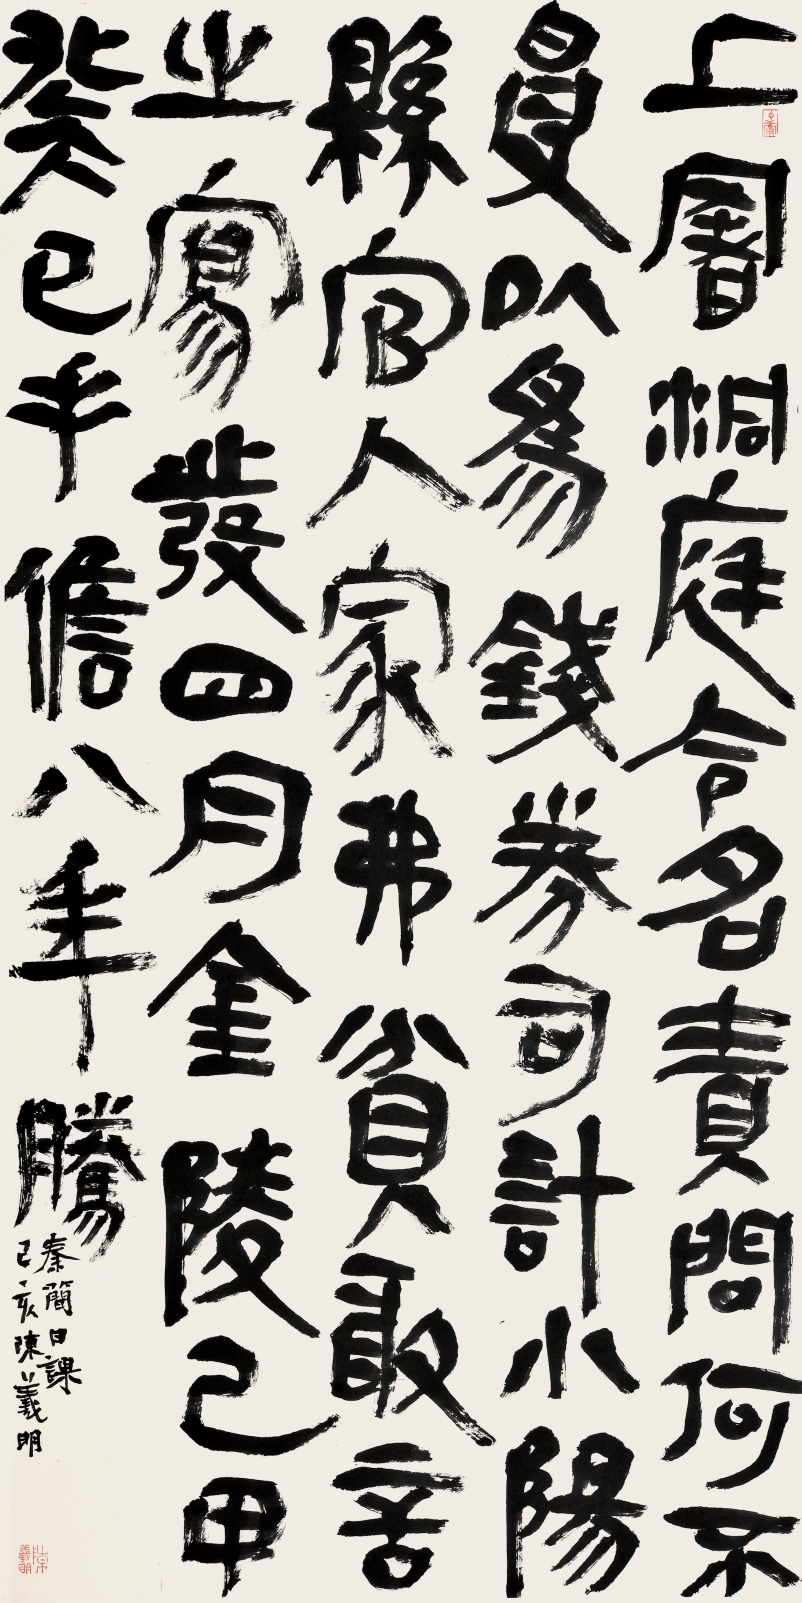 上署洞庭令名責問何不
以為錢券司計小陽
縣官人家弗貧敢言
之寫發四月金陵己甲
癸巳手儋八年騰
秦簡日課
己亥陳義明